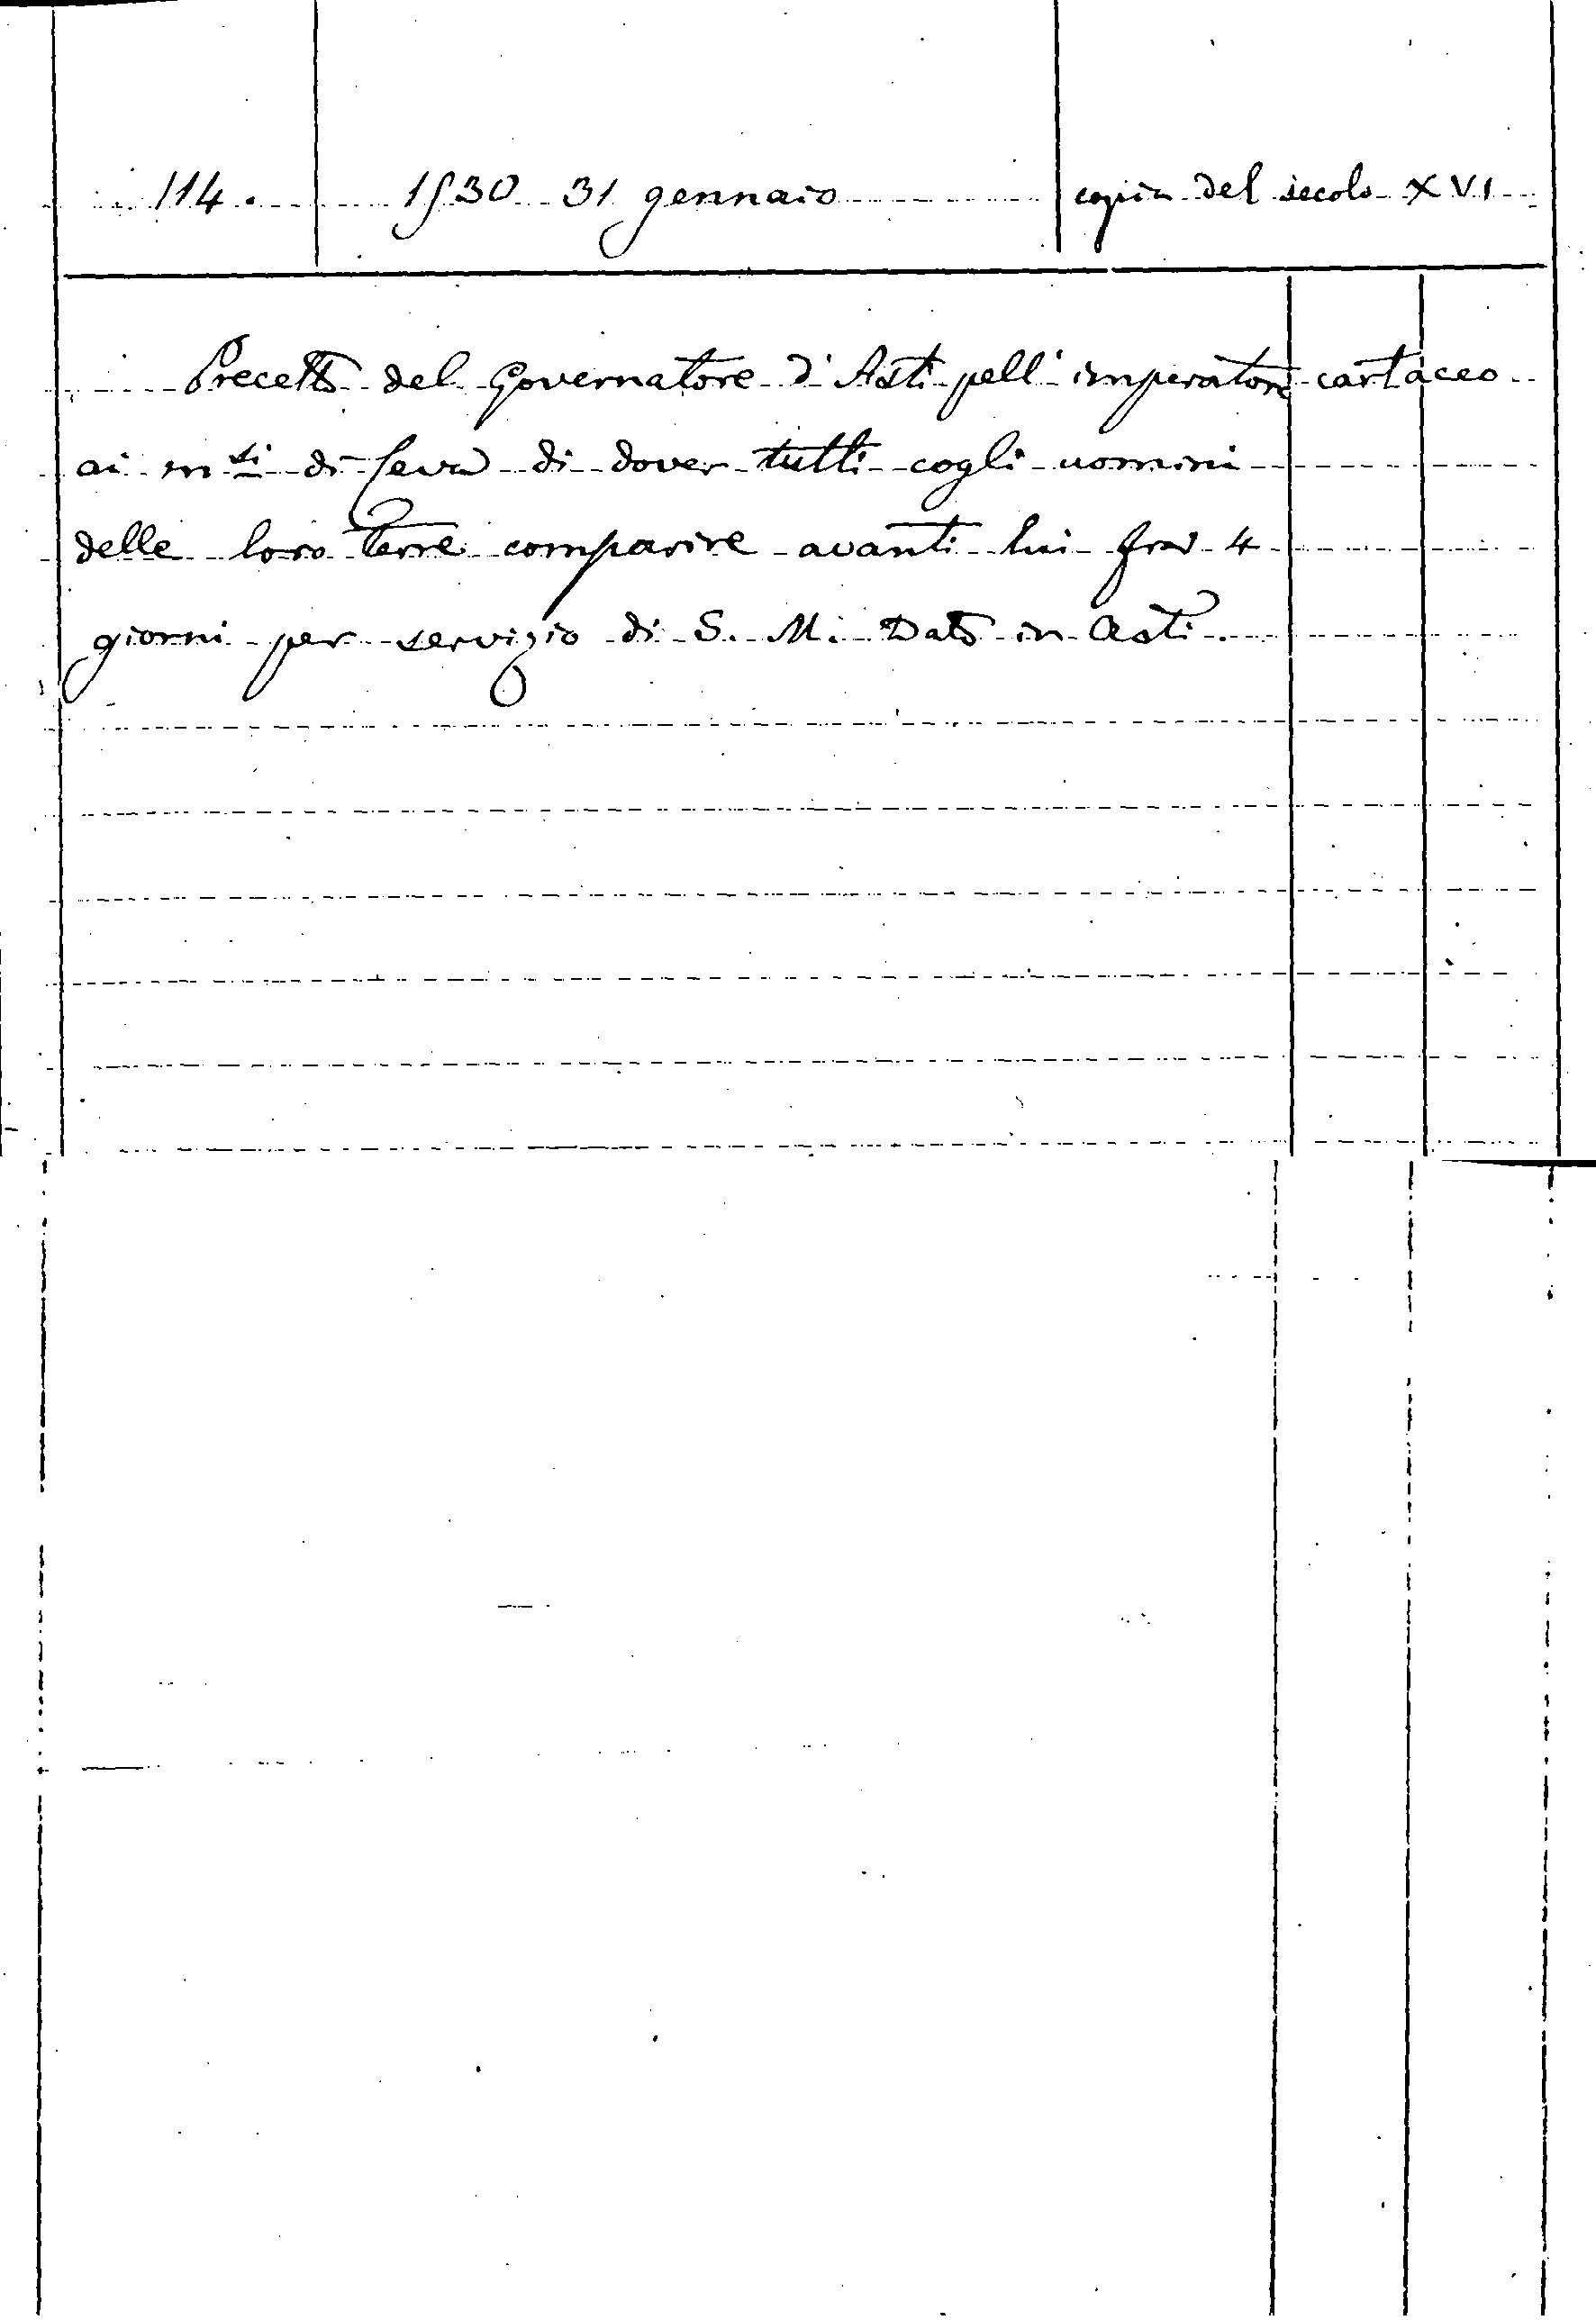 114. 1530 31 gennaio copia del secolo XVI
Precetto del Governatore d'Asti pell'imperatore cartaceo
ai m.si di Ceva di dover tutti cogli uomini
delle loro terre comparire avanti lui fra 4
giorni per servizio di S. M. Dato in Asti.